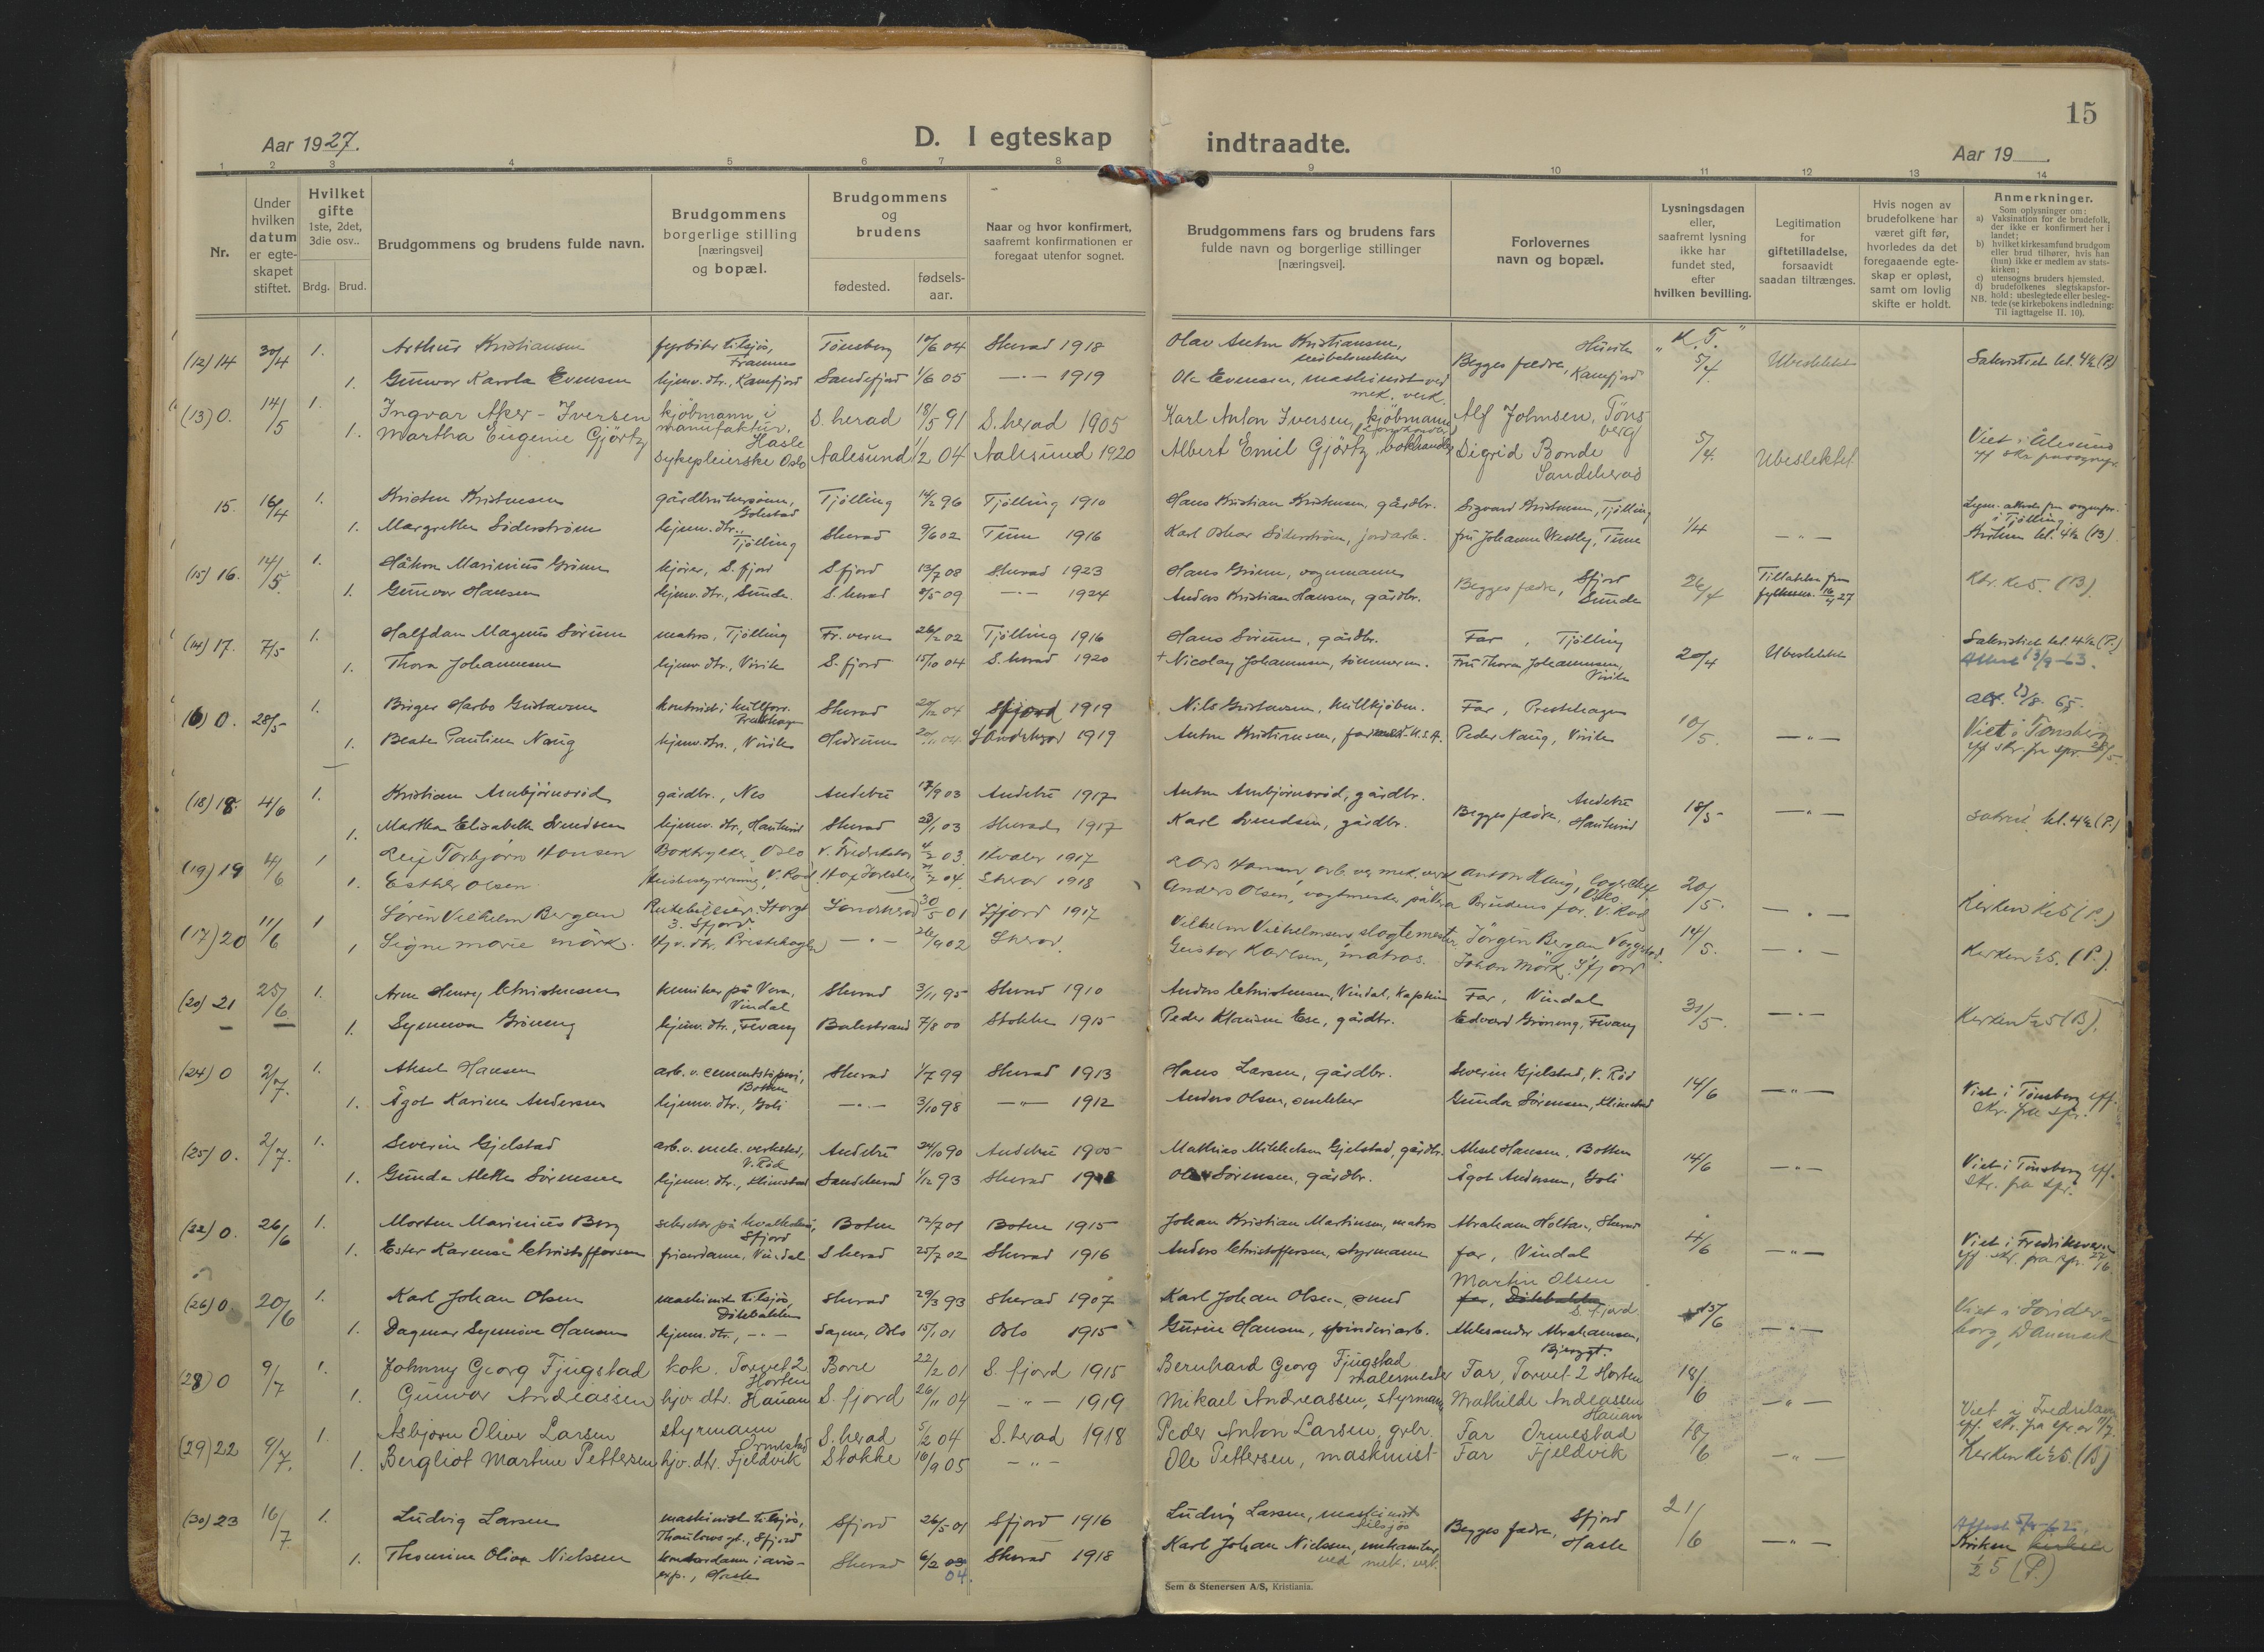 15
Aar 1927.
D. I egteskap indtraadte.
Aar 19
1 2 3 4 5 6 7 8 9 10 11 12 13 14
Nr.
Under hvilken datum er egteskapet stiftet.
Hvilket gifte 1ste, 2det, 3die osv..
Brdg. Brud.
Brudgommens og brudens fulde navn.
Brudgommens borgerlige stilling [næringsvei] og bopæl.
Brudgommens og brudens
fødested.
fødsels-aar.
Naar og hvor konfirmert, saafremt konfirmationen er foregaat utenfor sognet.
Brudgommens fars og brudens fars fulde navn og borgerlige stillinger [næringsvei].
Forlovernes navn og bopæl.
Lysningsdagen eller, saafremt lysning ikke har fundet sted, efter hvilken bevilling.
Legitimation for giftetilladelse, forsaavidt saadan tiltrænges.
Hvis nogen av brudefolkene har været gift før, hvorledes da det foregaaende egteskap er opløst, samt om lovlig skifte er holdt.
Anmerkninger.
Som oplysninger om:
a) Vaksination for de brudefolk, der ikke er konfirmert her i landet;
b) hvilket kirkesamfund brudgom eller brud tilhører, hvis han (hun) ikke er medlem av statskirken;
c) utensogns bruders hjemsted.
d) brudefolkenes slegtskapsforhold: ubeslegtede eller beslegtede (se kirkebokens indledning: NB. Til iagttagelse II. 10).
(12) 14 30/4 1. Arthur Kristiansen fyrbøter tilsjøs, Framnes Tønsberg 10/6 04 Sherad 1918 Olav Anton Kristiansen, Begges fædre, "K. T." 5/4 Ubeslektet Sakristiet kl. 4½ (P.)
1. Gunvor Karola Evensen hjemv. dtr., Kamfjord Sandefjord 1/6 05 —"— 1919 Ole Evensen, maskinist ved mek. verk. Kamfjord
(13) 0. 14/5 1. Ingvar Aker-Iversen kjøbmann i manufaktur, Hasle S. herad 18/5 91 S. herad 1905 Karl Anton Iversen, kjøbmann Alf Johnsen, Tønsberg
1. Martha Eugenie Gjörtz sykepleierske Oslo Aalesund 1/2 04 Aalesund 1920 Albert Emil Gjörtz bokhandler Sigrid Bonde Sandeherad 5/4. Ubeslektet Viet i Ålesund
15. 16/4 1. Kristen Kristensen gårdbrukersønn, Tjølling 14/2 96 Tjølling 1910 Hans Kristian Kristensen, gårdbr. Sigvard Kristensen, Tjølling
1. Margrethe Söderström hjemv. dtr., Tjølling Sherad 9/6 02 Tune 1916 Karl Oskar Söderström, jordarb. fru Johanne Westby, Tune 1/4 —"— i Tjølling. Kirken kl. 4½ (B).
(15) 16. 14/5. 1. Håkon Marinius Grimm kjører, S. fjord S. fjord 13/7 08 Sherad 1923 Hans Grimm, vognmann Begges fædre, Sfjord 26/4 Tillatelse fra fylkesm. 16/4 27 Kl. 5. (B)
1. Gunvor Hansen hjemv. dtr., Sunde. S. herad 9/5 09 —"— 1924 Anders Kristian Hansen, gårdbr. Sunde
(14) 17. 7/5 1. Halfdan Magnus Sörum matros, Tjølling Fr. vern 26/2 02 Tjølling 1916 Hans Sörum, gårdbr. Far, Tjølling Sakristiet kl. 4½ (P.)
1. Thora Johannesen hjemv. dtr., Virik S. fjord 15/10 04 S. herad 1920 + Nicolay Johannesen, tømmerm. Fru Thora Johannesen, Virik 20/4 Ubeslektet Attest 13/9-63.
(16) 0. 28/5 1. Birger Harbo Gustavsen Prestehagen Sherad 04 Sfjord 1919 Nils Gustavsen, kullkjøbm. Far, Prestehagen
1. Beate Pauline Naug hjemv. dtr., Virik Hedrum Sandeherad 1919 Anton Kristiansen, U.S.A. Peder Naug, Virik 10/5. —"— Viet i Tønsberg eff. skr. fra spr. 28/5.
(18) 18. 4/6 1. Kristian Arnbjørnsrød gårdbr., Nes Andebu 17/9 03 Andebu 1917 Anton Arnbjørnsrød, gårdbr. Begges fædre, Andebu 18/5 —"—
1. Martha Elisabeth Svendsen hjemv. dtr., Haukerød Sherad 23/1 03 Sherad 1917 Karl Svendsen, gårdbr. Haukerød sakrist. kl. 4½ (P.)
(19) 19 4/6 1 Leif Torbjørn Hansen Boktrykker, Oslo V. Fredrikstad 4/2 03. Hvaler 1917 Lars Hansen arb. ved mek. verk Anton Haug, lagerchef Oslo. 20/5.
1. Esther Olsen. V. Rød 04. Sherad 1918 Anders Olsen, vogtmester Brudens far. V. Rød. —"— Kirken kl. 5 (P.)
(17) 20 11/6 1 Søren Vilhelm Bergan Rutebileier, Storgt 3. Sfjord Sandeherad 30/5 01 Sfjord 1917 Vilhelm Vilhelmsen slagtemester Jørgen Bergan 14/5.
1 Signe Marie Mørk. Hjv. dtr. Prestehagen —"— 26/9 02 Sherad. Gustav Karlsen, matros. Johan Mørk. Sfjord —"— Kirken ½5. (P.).
(20) 21 25/6. 1. Arne Henry Christensen kemiker på Vera, Vindal Sherad 3/11 95 Sherad 1910 Anders Christensen, Vindal, Kaptein Far, Vindal 31/5. —"—
1. Synnøva Grøning hjemv. dtr., Fevang Balestrand 7/8 00 Stokke 1915 Peder Klausen Ese, gårdbr. Edvard Grøning, Fevang Kirken ½5 (B).
(24) 0 2/7. 1. Aksel Hansen arb. v. cementstøperi, Botten Sherad 1/7 99 Sherad 1913 Hans Larsen, gårdbr. Severin Gjelstad, V. Rød 14/6 —"— Viet i Tønsberg eff. skr. fra spr.
1. Ågot Karine Andersen hjemv. dtr., Goli —"— 3/10 98 —"— 1912 Anders Olsen, snekker Gunda Sørensen, Klinestad
(25) 0. 2/7. 1. Severin Gjelstad arb. v. mek. verksted, V. Rød Andebu 24/10 90 Andebu 1905 Mathias Mikkelsen Gjelstad, gårdbr. Aksel Hansen, Botten 14/6 —"— Viet i Tønsberg eff. skr. fra spr.
1. Gunda Alette Sørensen hjemv. dtr., Klinestad Sandeherad 1/12 93 Sherad Sørensen, gårdbr. Ågot Andersen, Goli
(22) 0. 26/6 1. Morten Marinius Berg Sfjord Botne 12/7 01 Botne 1915 Johan Kristian Martinsen, matros Abraham Holtan, Sherad 4/6 —"— Viet i Fredriksvern
1. Ester Karense Christoffersen Vindal S herad 25/7 02 Sherad 1916 Anders Christoffersen, styrmann far, Vindal eff. skr. fra spr. 27/6.
(26) 0. 20/6 1. Karl Johan Olsen maskinist tilsjøs, Dölebakken Sherad 29/3 93 Sherad 1907 Karl Johan Olsen, smed Martin Olsen far, Dölebakken S. fjord 13/6 —"— Viet i Sønderborg, Danmark
1. Dagmar Synnöve Hansen hjemv. dtr., —"— Sagene, Oslo 15/1 01 Oslo 1915 Hansen, spinderiarb. Aleksander Abrahamsen, Bjerggt.
(28) 0 9/7 1. Johnny Georg Fjugstad kok. Torvet 2 Horten Borre 22/2 01 S. fjord 1915 Bernhard Georg Fjugstad malermester Far, Torvet 2 Horten 18/6
1. Gunvor Andreassen hjv. dtr. Hauan S. fjord 26/11 04 —"— 1919 Mikael Andreassen, styrmann Mathilde Andreassen Hauan —"—
(29) 22 9/7. 1. Asbjørn Oliver Larsen styrmann Ormestad S. herad 5/2 04 S. herad 1918 Peder Anton Larsen, grbr. Far Ormestad 18/6
1. Bergliot Martine Pettersen hjv. dtr. Fjeldvik Stokke 16/9 05 —"— Ole Pettersen, maskinist Far Fjeldvik —"— Kirken kl ½5. (B)
(30) 23 16/7 1. Ludvig Larsen maskinist tilsjøs, Thaulows gt., Sfjord Sfjord 26/5 01 Sfjord 1916 Ludvig Larsen, maskinist tilsjøs Begges fædre, Sfjord 21/6
1. Thomine Oliva Nielsen kontordame i avis-exp., Hasle Sherad 6/2 03 04. Sherad 1918 Karl Johan Nielsen, mekaniker ved mek. verk. Hasle —"— Kirken ½ 5 (P.)
Sem & Stenersen A/S, Kristiania.